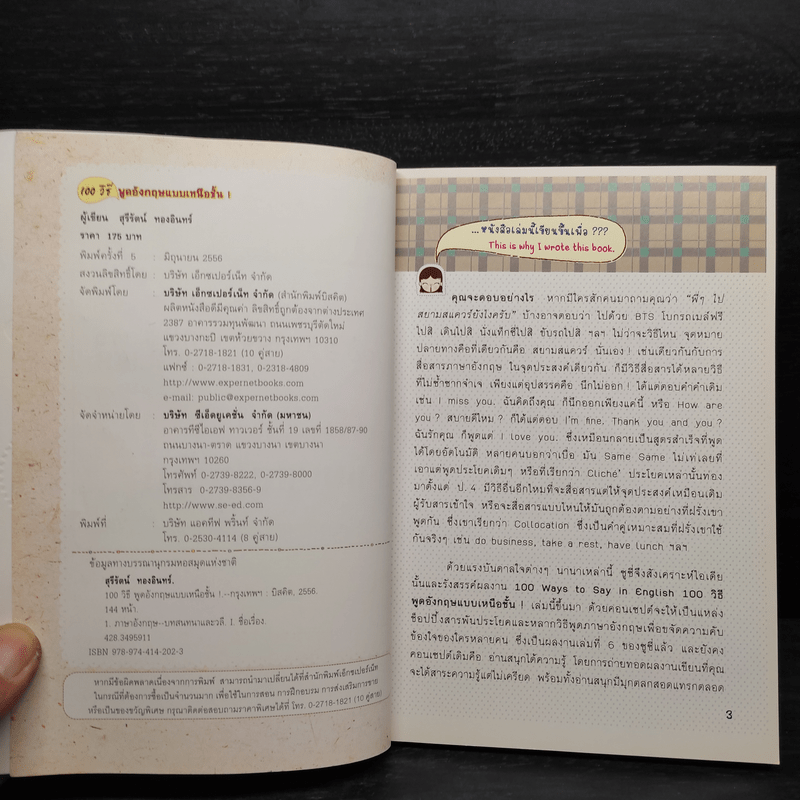 100 วิธี พูดอังกฤษแบบเหนือชั้น !
ผู้เขียน สุรีรัตน์ ทองอินทร์
ราคา 175 บาท
พิมพ์ครั้งที่ 5 : มิถุนายน 2556
สงวนลิขสิทธิ์โดย : บริษัท เอ็กซเปอร์เน็ท จำกัด
จัดพิมพ์โดย : บริษัท เอ็กซเปอร์เน็ท จำกัด (สำนักพิมพ์บิสคิต)
ผลิตหนังสือดีมีคุณค่า ลิขสิทธิ์ถูกต้องจากต่างประเทศ
2387 อาคารรวมทุนพัฒนา ถนนเพชรบุรีตัดใหม่
แขวงบางกะปิ เขตห้วยขวาง กรุงเทพฯ 10310
โทร. 0-2718-1821 (10 คู่สาย)
แฟกซ์ : 0-2718-1831, 0-2318-4808
http://www.expernetbooks.com
e-mail: public@expernetbooks.com
จัดจำหน่ายโดย : บริษัท ซีเอ็ดยูเคชั่น จำกัด (มหาชน)
อาคารทีซีไอเอฟ ทาวเวอร์ ชั้นที่ 19 เลขที่ 1858/87-90
ถนนบางนา-ตราด แขวงบางนา เขตบางนา
กรุงเทพฯ 10260
โทรศัพท์ 0-2739-8222, 0-2739-8000
โทรสาร 0-2739-8356-9
http://www.se-ed.com
พิมพ์ที่ : บริษัท แอคทีฟ พริ้นท์ จำกัด
โทร. 0-2530-4114 (8 คู่สาย)
ข้อมูลทางบรรณานุกรมหอสมุดแห่งชาติ
สุรีรัตน์ ทองอินทร์.
100 วิธี พูดอังกฤษแบบเหนือชั้น !.--กรุงเทพฯ : บิสคิต, 2556.
144 หน้า.
1. ภาษาอังกฤษ--บทสนทนาและวลี. I. ชื่อเรื่อง.
428.3495911
ISBN 978-974-414-202-3
หากมีข้อผิดพลาดเนื่องจากการพิมพ์ สามารถนำมาเปลี่ยนได้ที่สำนักพิมพ์เอ็กซเปอร์เน็ท
ในกรณีที่ต้องการซื้อเป็นจำนวนมาก เพื่อใช้ในการสอน การฝึกอบรม การส่งเสริมการขาย
หรือเป็นของขวัญพิเศษ กรุณาติดต่อสอบถามราคาพิเศษได้ที่ โทร. 0-2718-1821 (10 คู่สาย)
...หนังสือเล่มนี้เขียนขึ้นเพื่อ ???
This is why I wrote this book.
คุณจะตอบอย่างไร หากมีใครสักคนมาถามคุณว่า "พี่ๆ ไป
สยามสแควร์ยังไงครับ" บ้างอาจตอบว่า ไปด้วย BTS โบกรถเมล์ฟรี
ไปสิ เดินไปสิ นั่งแท็กซี่ไปสิ ขับรถไปสิ ฯลฯ ไม่ว่าจะวิธีไหน จุดหมาย
ปลายทางคือที่เดียวกันคือ สยามสแควร์ นั่นเอง ! เช่นเดียวกันกับการ
สื่อสารภาษาอังกฤษ ในจุดประสงค์เดียวกัน ก็มีวิธีสื่อสารได้หลายวิธี
ที่ไม่ซ้ำซากจำเจ เพียงแต่อุปสรรคคือ นึกไม่ออก ! ได้แต่ตอบคำคำเดิม
เช่น I miss you. ฉันคิดถึงคุณ ก็นึกออกเพียงแค่นี้ หรือ How are
you ? สบายดีไหม ? ก็ได้แต่ตอบ I'm fine. Thank you and you ?
ฉันรักคุณ ก็พูดแต่ I love you. ซึ่งเหมือนกลายเป็นสูตรสำเร็จที่พูด
ได้โดยอัตโนมัติ หลายคนบอกว่าเบื่อ มัน Same Same ไม่เท่เลยที่
เอาแต่พูดประโยคเดิมๆ หรือที่เรียกว่า Cliché' ประโยคเหล่านั้นท่อง
มาตั้งแต่ ป. 4 มีวิธีอื่นอีกไหมที่จะสื่อสารแต่ให้จุดประสงค์เหมือนเดิม
ผู้รับสารเข้าใจ หรือจะสื่อสารแบบไหนให้มันถูกต้องตามอย่างที่ฝรั่งเขา
พูดกัน ซึ่งเขาเรียกว่า Collocation ซึ่งเป็นคำคู่เหมาะสมที่ฝรั่งเขาใช้
กันจริงๆ เช่น do business, take a rest, have lunch ฯลฯ
ด้วยแรงบันดาลใจต่างๆ นานาเหล่านี้ ซูซี่จึงสังเคราะห์ไอเดีย
นั้นและรังสรรค์ผลงาน 100 Ways to Say in English 100 วิธี
พูดอังกฤษแบบเหนือชั้น ! เล่มนี้ขึ้นมา ด้วยคอนเซปต์จะให้เป็นแหล่ง
ช็อปปิ้งสารพันประโยคและหลากวิธีพูดภาษาอังกฤษเพื่อขจัดความคับ
ข้องใจของใครหลายคน ซึ่งเป็นผลงานเล่มที่ 6 ของซูซี่แล้ว และยังคง
คอนเซปต์เดิมคือ อ่านสนุกได้ความรู้ โดยการถ่ายทอดผลงานเขียนที่คุณ
จะได้สาระความรู้แต่ไม่เครียด พร้อมทั้งอ่านสนุกมีมุกตลกสอดแทรกตลอด
3